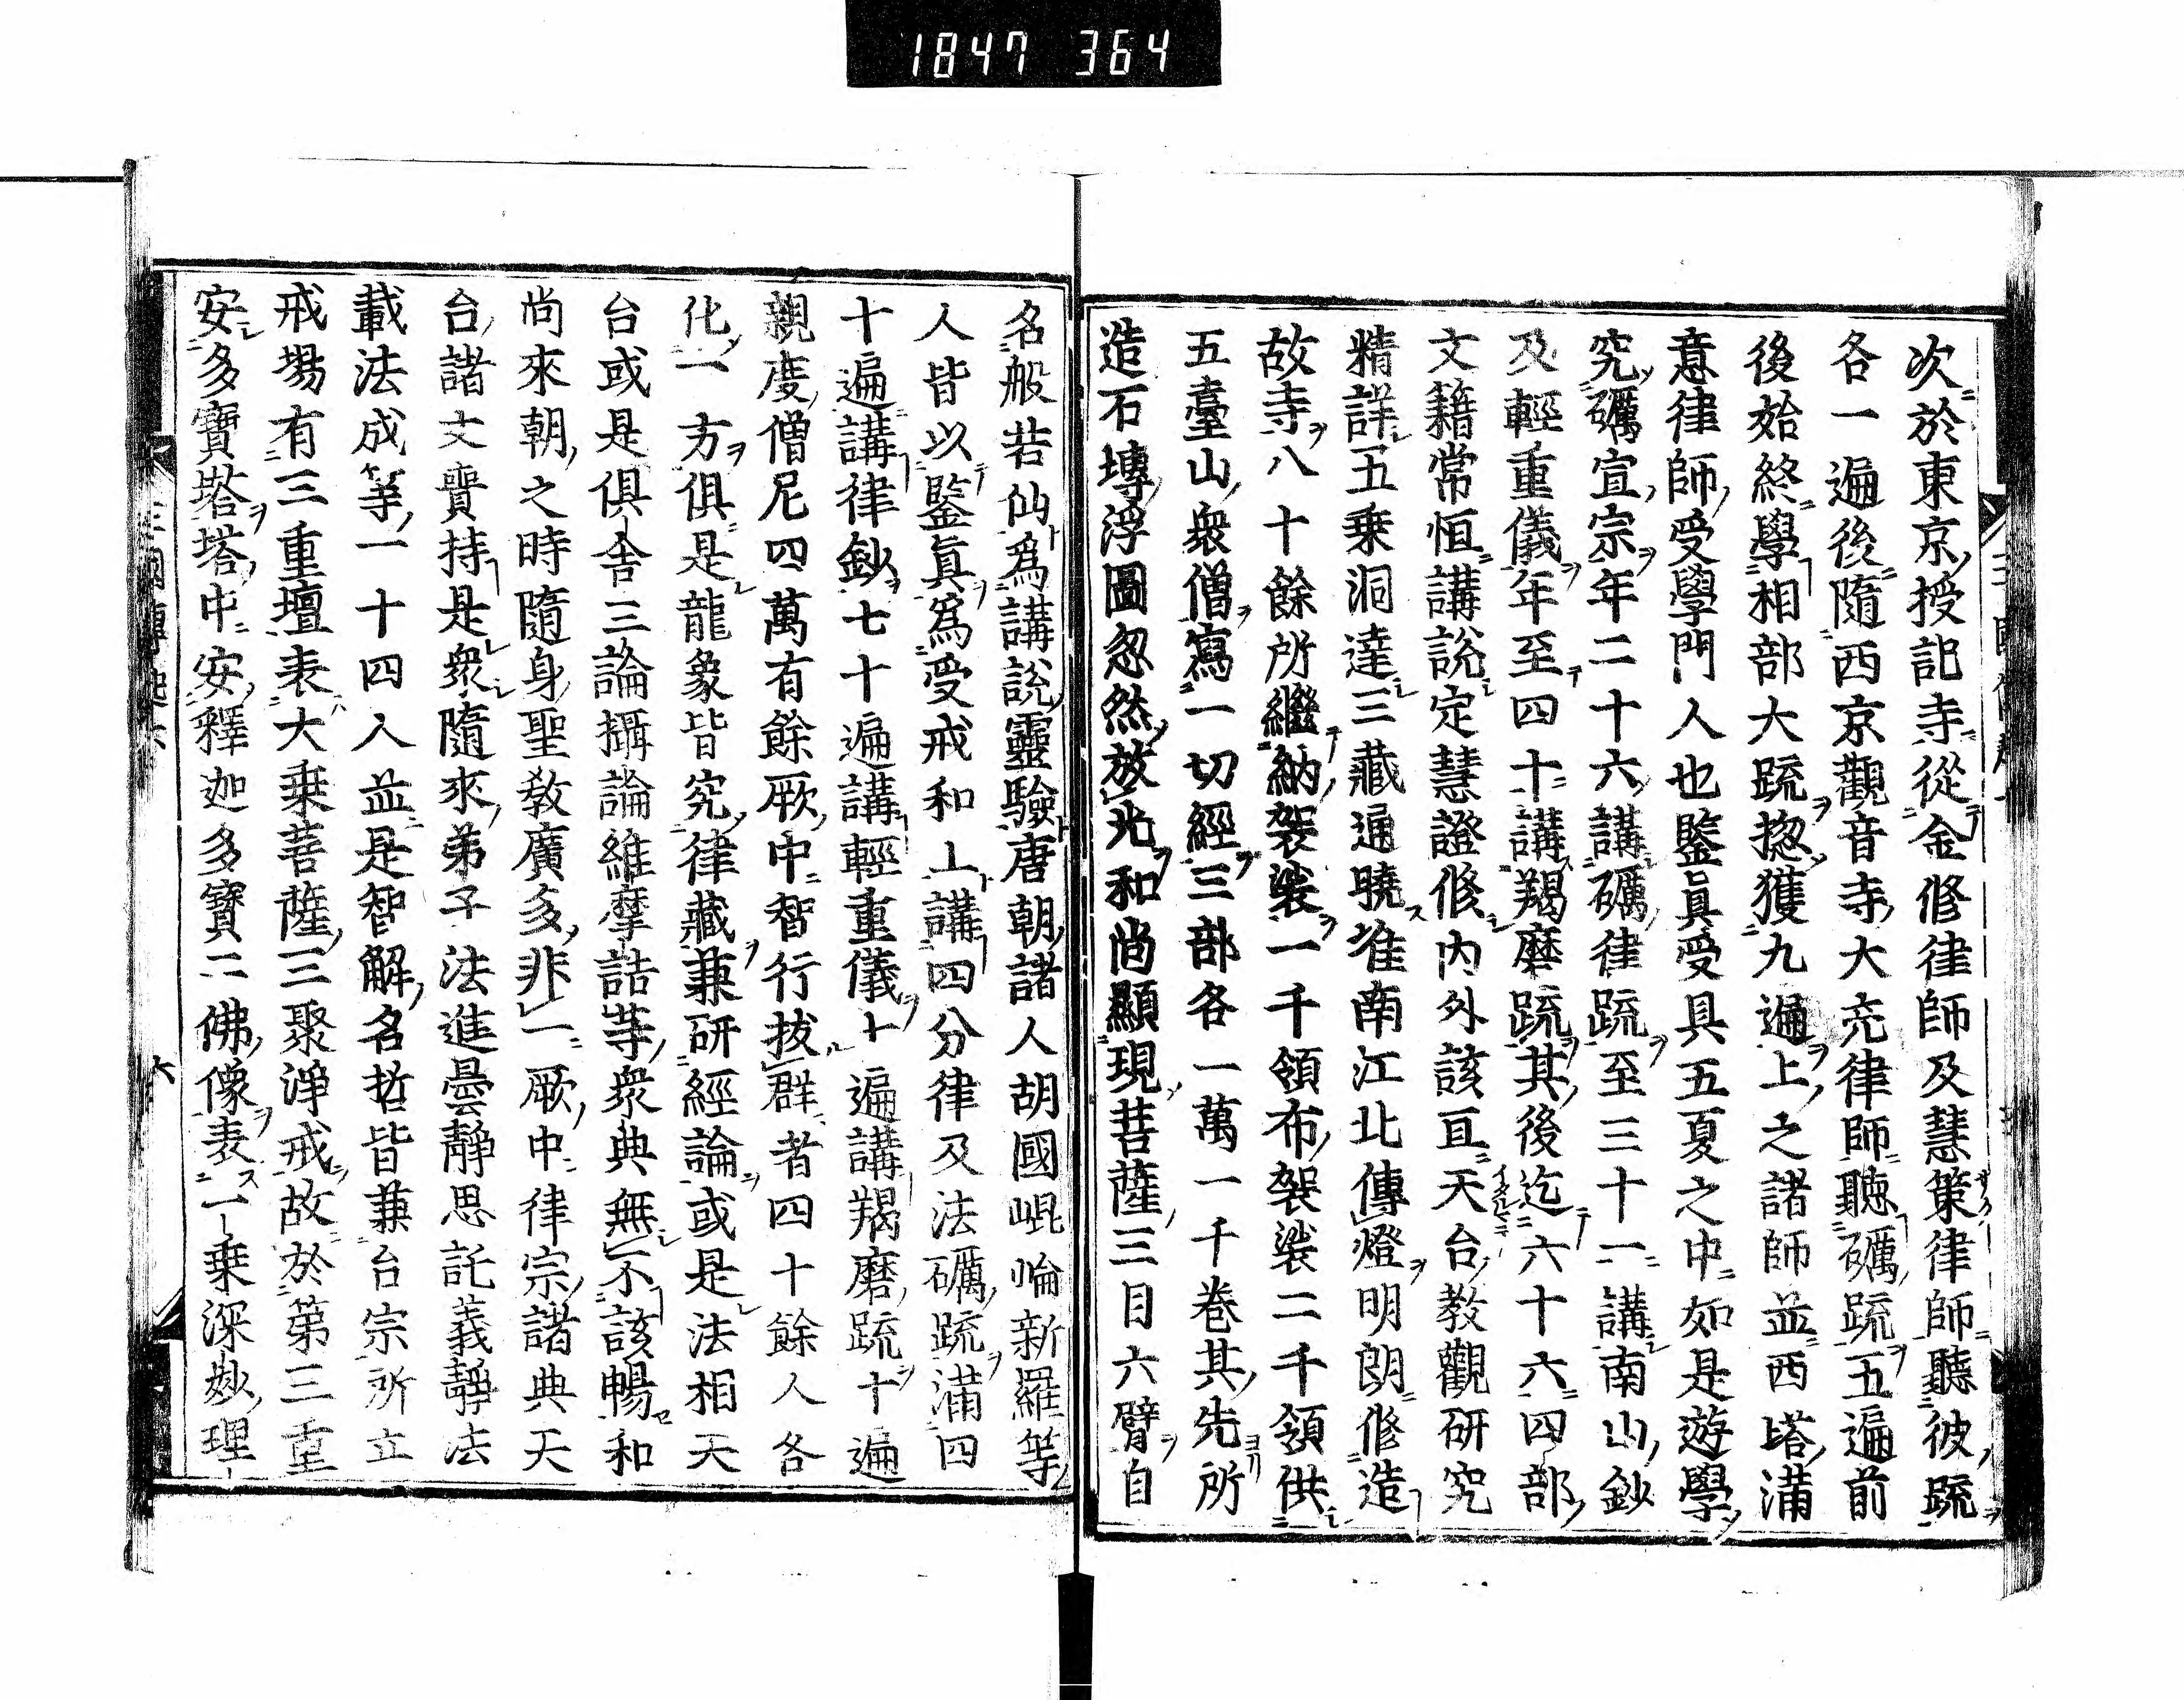 1847 364
次於東京授記寺從金修律師及慧策律師聽彼疏
各一遍後隨西京觀音寺大亮律師聽礪疏五遍前
後始終學相部大疏揔獲九遍上之諸師並西塔滿
意律師受學門人也鑒眞受具五夏之中如是遊學
究礪宣宗年二十六講礪律疏至三十一講南山鈔
及輕重儀年至四十講羯磨疏其後迄六十六四部
文籍常恒講說定慧證修內外該亘天台教觀研究
精詳五乗洞達三藏通曉淮南江北傳燈明朗修造
故寺八十餘所繼納袈裟一千領布袈裟二千領供
五臺山衆僧寫一切經三部各一萬一千卷其先所
造石塼浮圖忽然放光和尚顯現菩薩三目六臂自
名般若仙爲講說靈驗唐朝諸人胡國崐崘新羅等
人皆以鑒眞爲受戒和上講四分律及法礪疏滿四
十遍講律鈔七十遍講輕重儀十遍講羯磨疏十遍
親度僧尼四萬有餘厥中智行拔群者四十餘人各
化一方俱是龍象皆究律藏兼研經論或是法相天
台或是俱舍三論攝論維摩詰等衆典無不該暢和
尚來朝之時隨身聖教廣多非一厥中律宗諸典天
台諸文賷持是衆隨來弟子法進曇靜思託義靜法
載法成等一十四人並是智解名哲皆兼台宗所立
戒場有三重壇表大乗菩薩三聚淨戒故於第三重
安多寶塔塔中安釋迦多寶二佛像表一乗深妙理
六